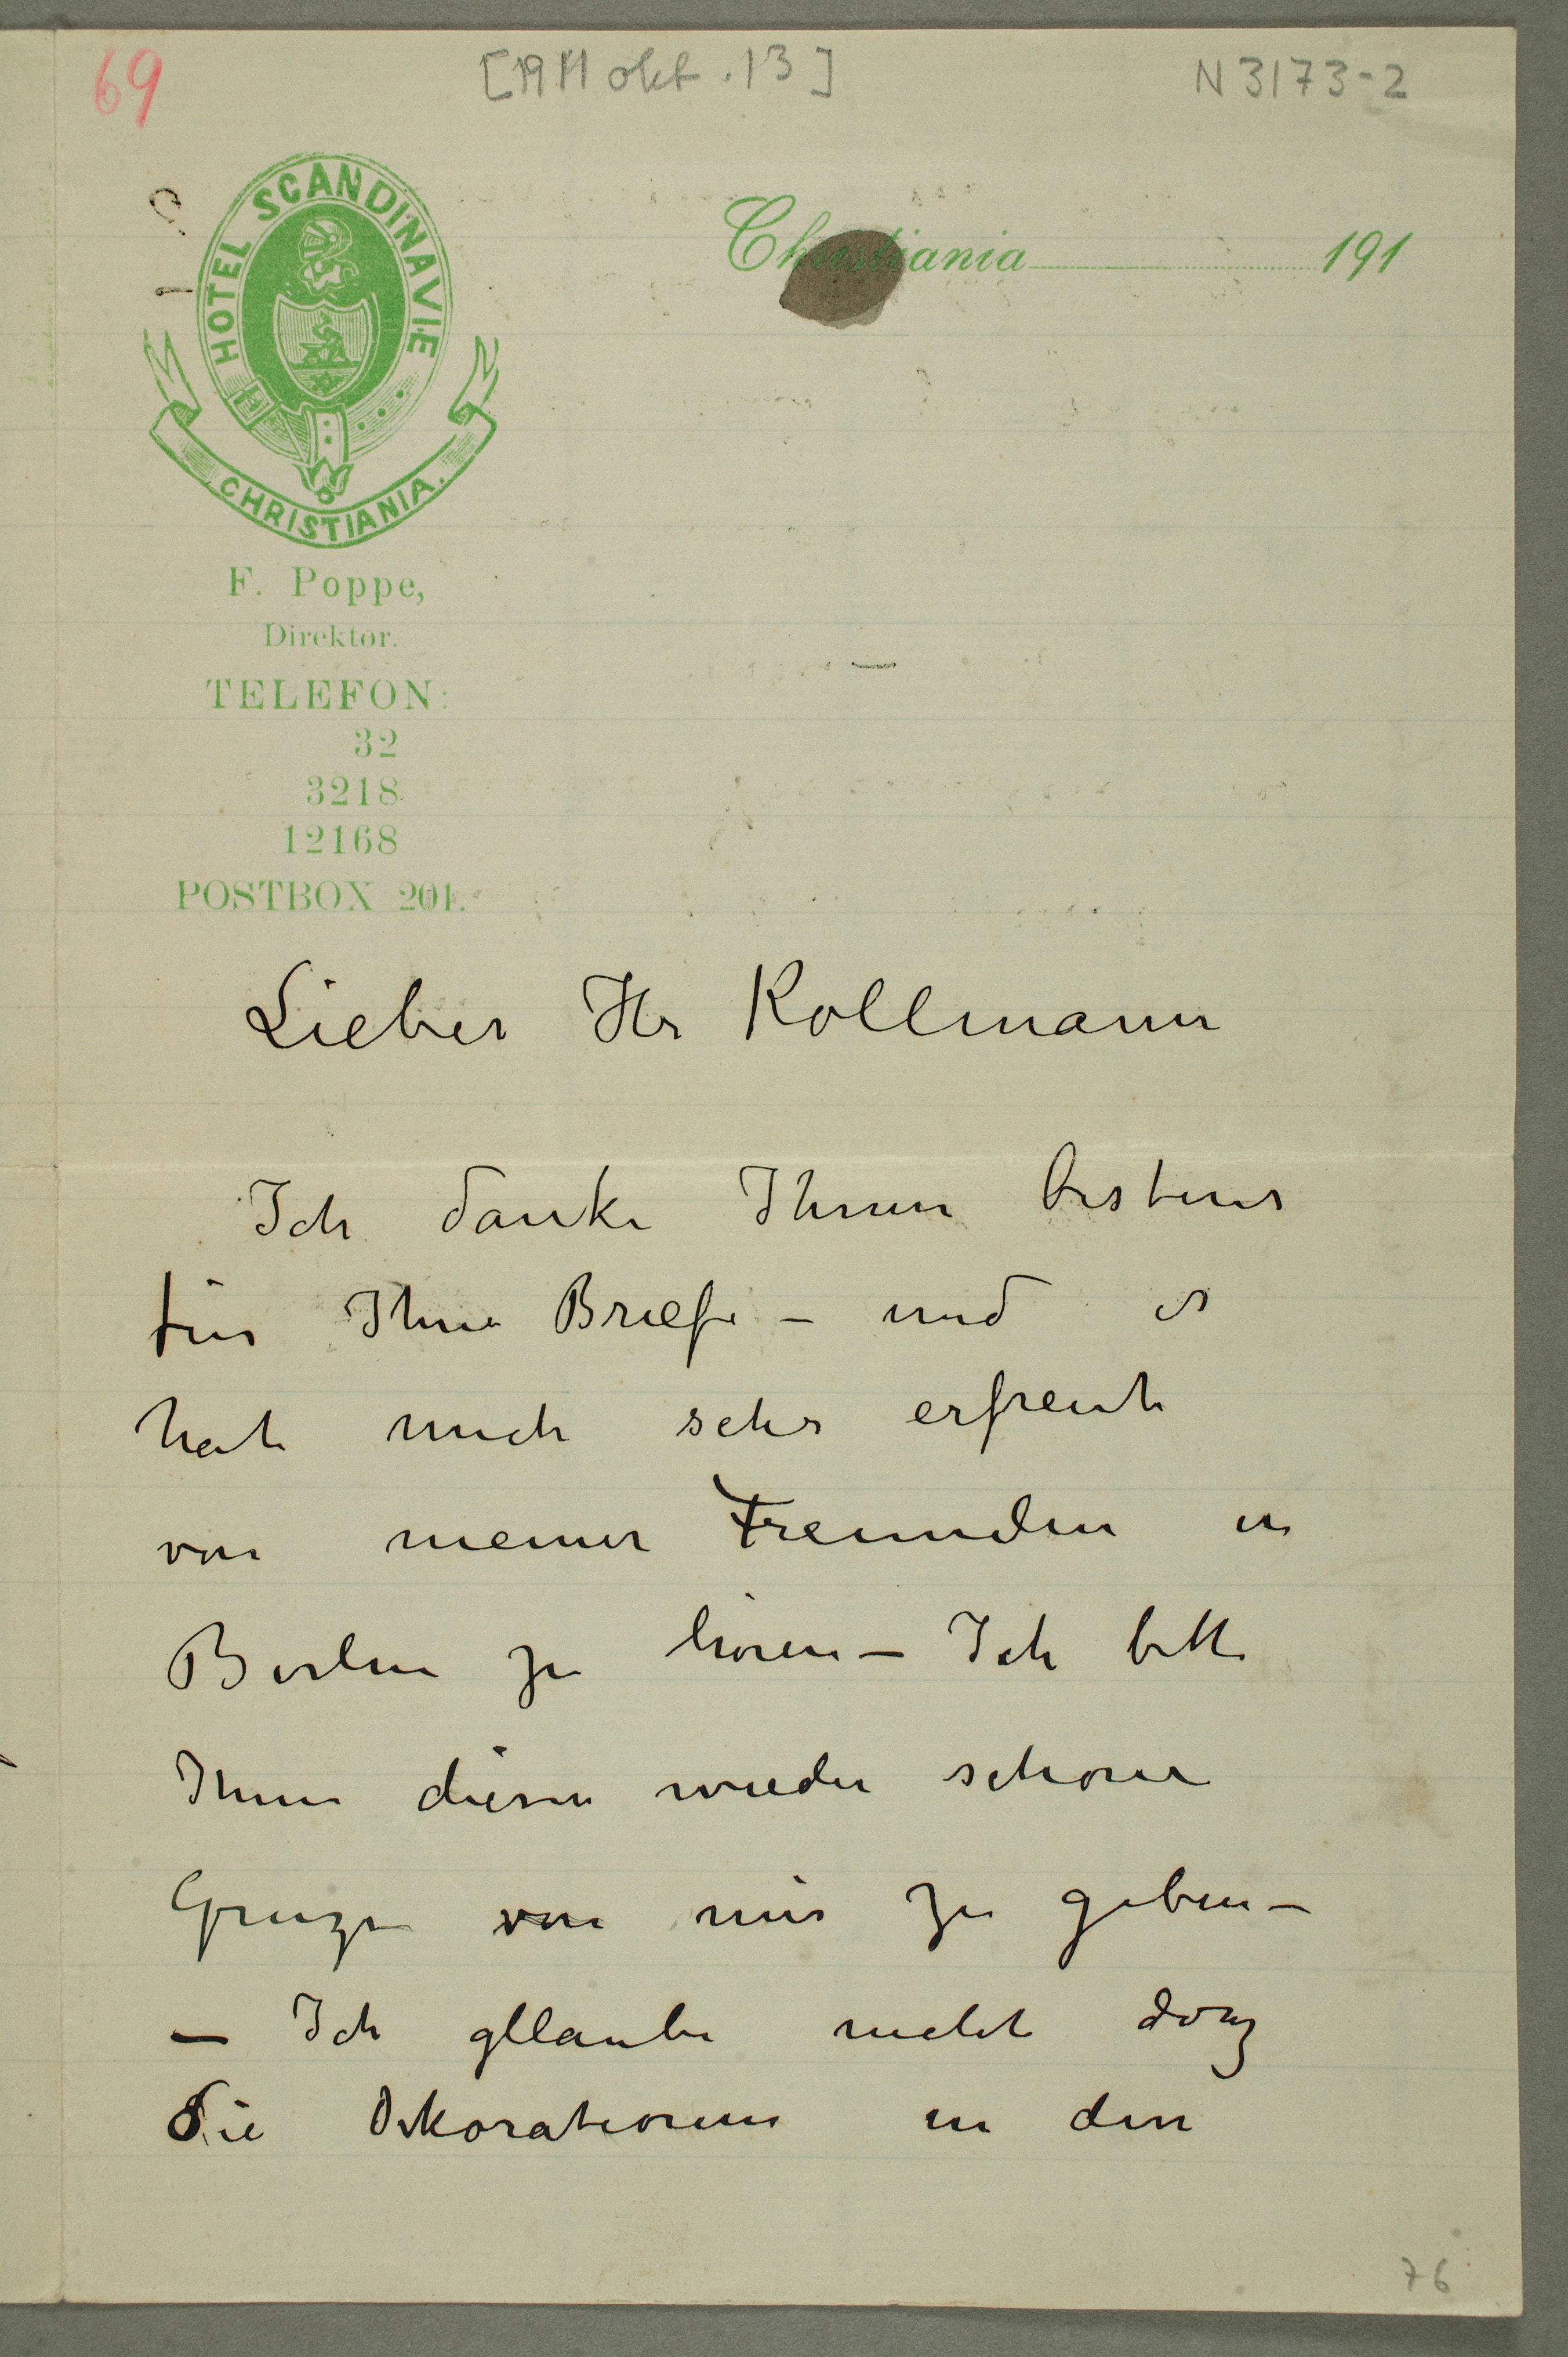 69
[1911 okt. 13]
N 3173-2
HOTEL SCANDINAVIE
CHRISTIANIA.
Christiania 191
F. Poppe,
Direktor.
TELEFON:
32
3218
12168
POSTBOX 201.
Lieber Hr Kollmann
Ich danke Ihnen bestens
für Ihre Briefe – und es
hat mich sehr erfreut
von meiner Freunden in
Berlin zu hören – Ich bitte
Ihnen diesen wieder schöne
Gruze von mir zu geben –
– Ich gllaube nicht dasz
die Dekorationen in den
76